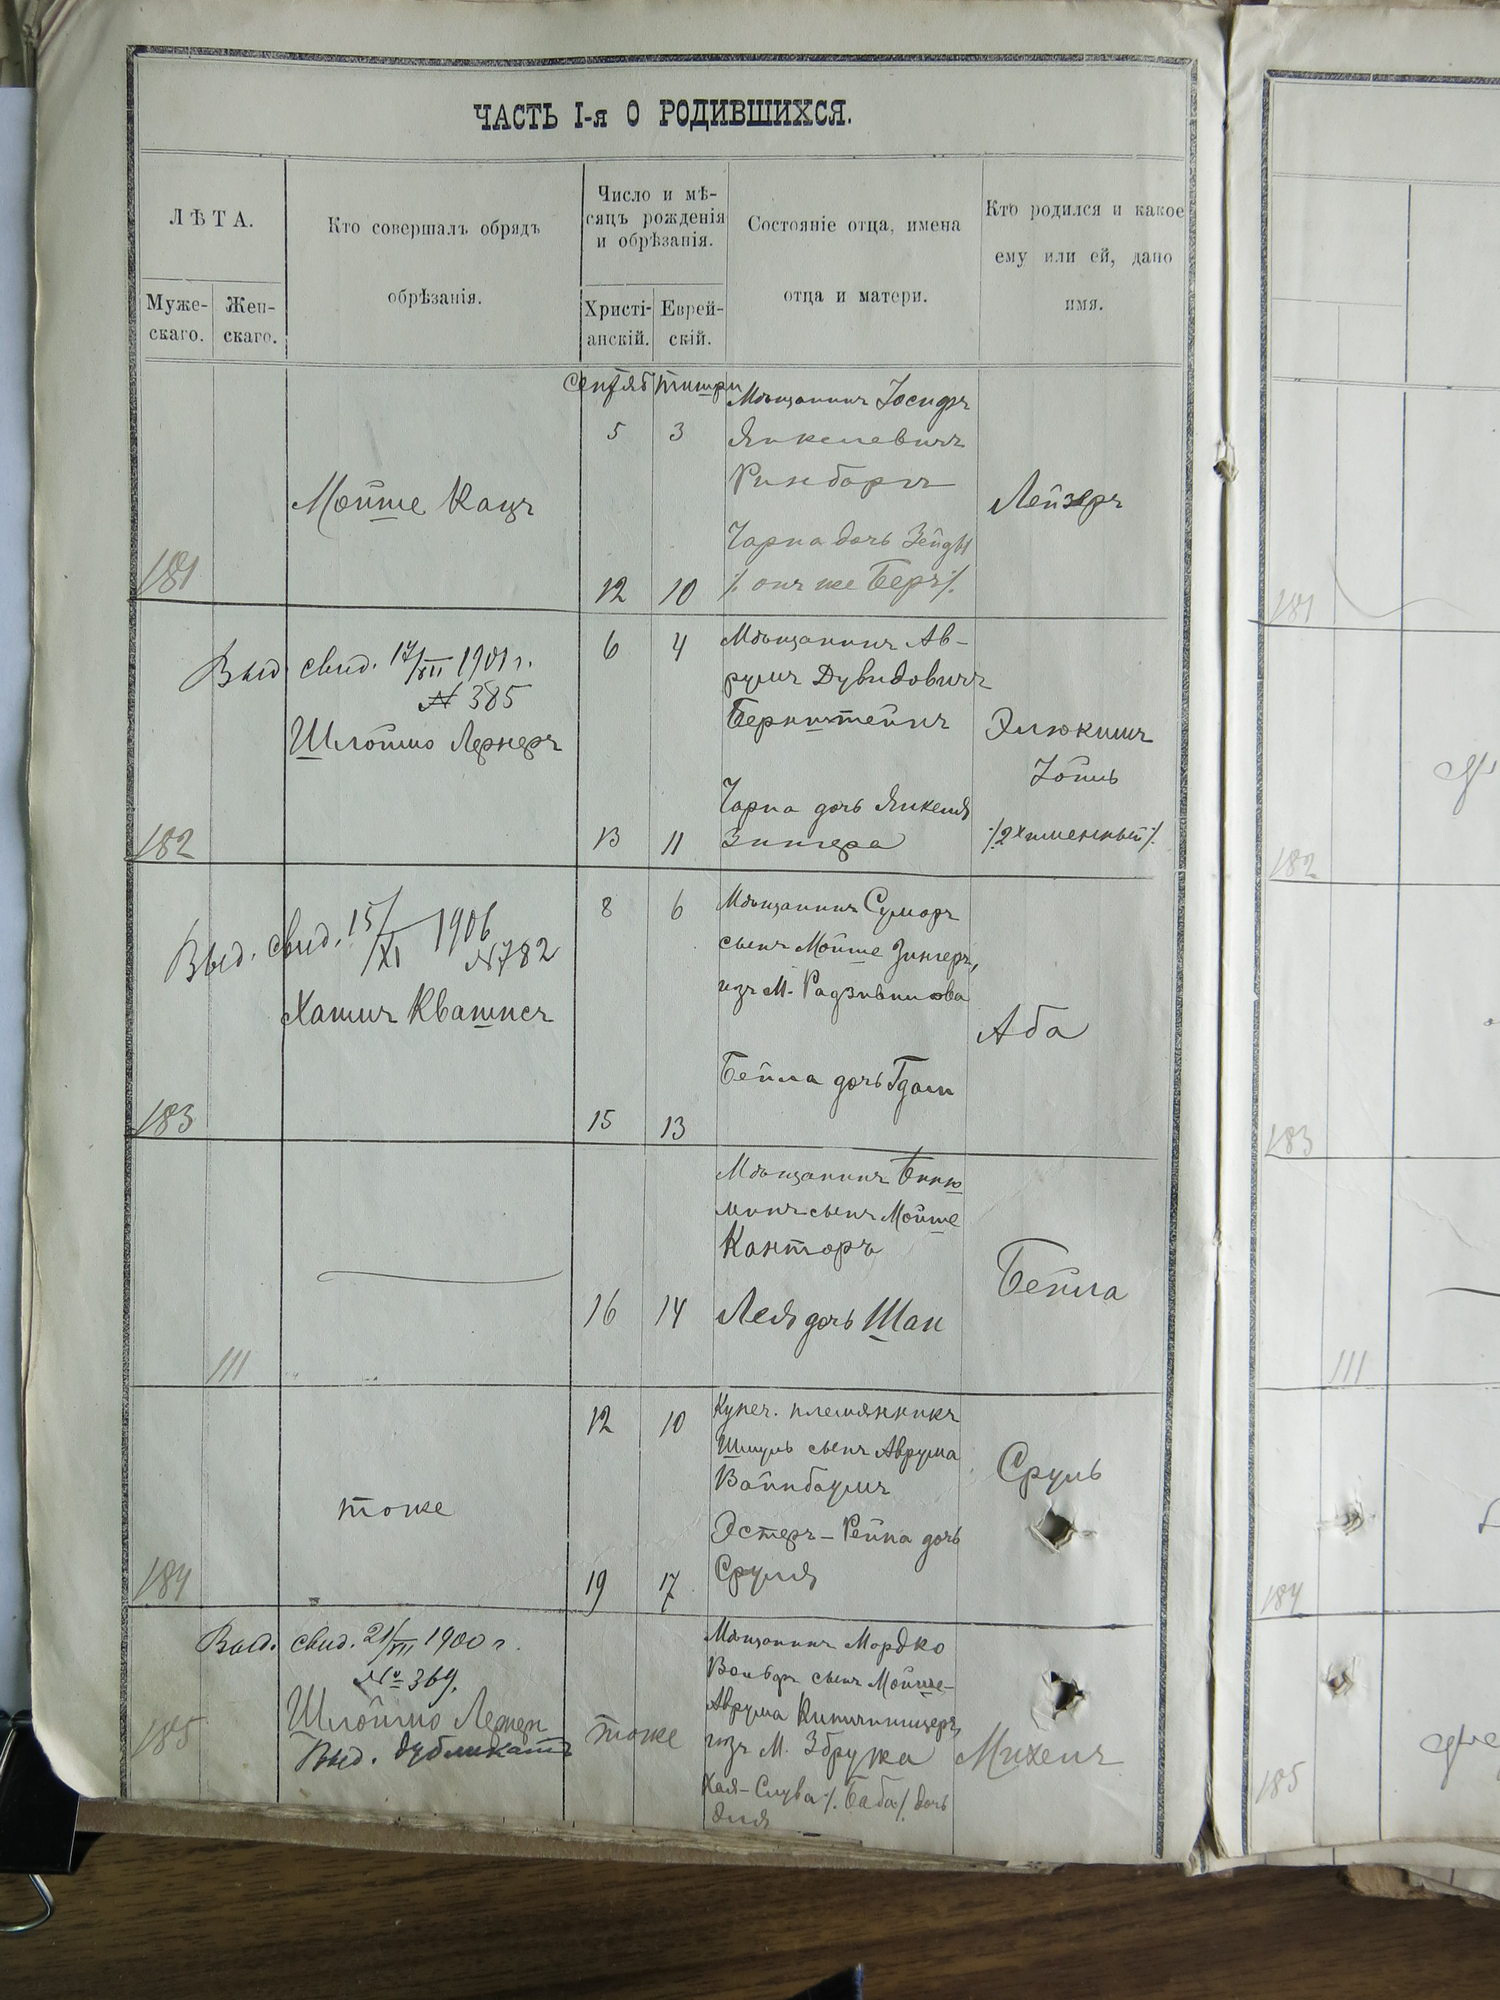 ЧАСТЬ I-я О РОДИВШИХСЯ.
ЛѢТА.
Муже-
скаго.
Жен-
скаго.
Кто совершалъ обрядъ
обрѣзанія.
Число и мѣ-
сяцъ рожденія
и обрѣзанія.
Христі-
анскій.
Еврей-
скій.
Состояніе отца, имена
отца и матери.
Кто родился и какое
ему или ей, дано
имя.
181
Мойше Кацъ
Сентяб
Тишри
5 3
12 10
Мѣщанинъ Іосифъ
Янкелевичъ
Чарна дочь Зейды
/. онъ же Беръ /.
Лейзеръ
181
182
Выд. свид. 17/XII 1901 г.
№ 385
Шлоймо Лернеръ
6 4
13 11
Мѣщанинъ Ав-
румъ Дувидовичъ
Бернштейнъ
Чарна дочь Янкеля
Зингера
Элюкимъ
/. 2хименный /.
182
183
Выд. свид. 15/XI 1906
№ 782
Хаимъ
8 6
15 13
Мѣщанинъ
сынъ Мойше Зингеръ,
изъ М. Радзивилова
Бейла дочь Гдали
Аба
183
111
16 14
Мѣщанинъ Биню
минъ сынъ Мойше
Канторъ
Лея дочь
Бейла
111
184
тоже
12 10
19 17
Купеч. племянникъ
Шмуль сынъ Аврума
Вайнбаумъ
Эстеръ-Рейла дочь
Сруля
Сруль
184
185
Выд. свид. 21/XII 1900 г.
№ 369.
Шлоймо Лернеръ
Выд. дубликатъ
тоже
Мѣщанинъ Мордко
Вольфъ сынъ Мойше-
Аврума
изъ М. Збружа
Хая-Слува /. Баба /. дочь
Михель
185